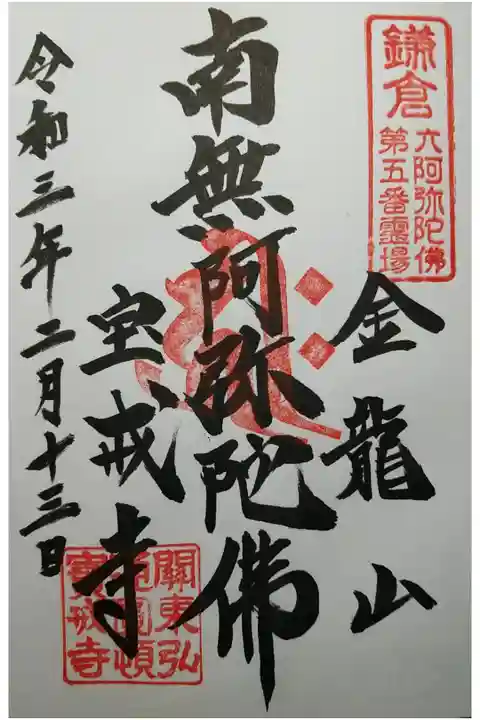 鎌倉
六阿弥陀佛
第五番霊場
金龍山
南無阿弥陀佛
宝戒寺
令和三年二月十三日
關東弘
寳戒寺